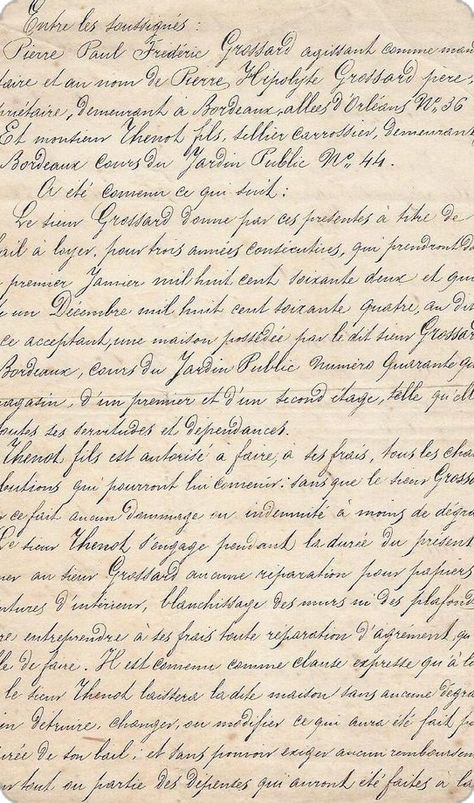 Entre les soussignés :
Pierre Paul Frédéric Grossard agissant comme man
taire et au nom de Pierre Hipolyte Grossard père
priétaire, demeurant à Bordeaux, allées d'Orléans Nº. 36
Et monsieur Thenot fils, sellier carrossier, demeurant
Bordeaux cours du Jardin Public Nº. 44.
A été convenu ce qui suit :
Le sieur Grossard donne par ces présentes à titre de
ail à loyer, pour trois années consécutives, qui prendront d
premier Janvier mil huit cent soixante deux et qui
un Décembre mil huit cent soixante quatre, au dit
ce acceptant, une maison possédée par le dit sieur Grossar
Bordeaux, cours du Jardin Public Numéro Quarante qu
magasin, d'un premier et d'un second étage, telle qu'ell
toutes ses servitudes et dépendances.
Thenot fils est autorisé a faire, à ses frais, tous les cha
butions qui pourront lui convenir : sans que le sieur Gross
ce fait aucun dommage ou indemnité à moins de dégra
Le sieur Thenot s'engage pendant la durée du présent
er au sieur Grossard aucune réparation pour papiers
ntures d'intérieur, blanchissage des murs ni des plafond
re entreprendre à ses frais toute réparation d'agrément, qu
de faire. Il est convenu comme clause expresse qu'à l
le sieur Thenot laissera la dite maison sans aucune dégra
in détruire, changer, ou modifier ce qui aura été fait p
urée de son bail ; et sans pouvoir exiger aucun remboursem
tout ou partie des dépenses qui auront été faites à la